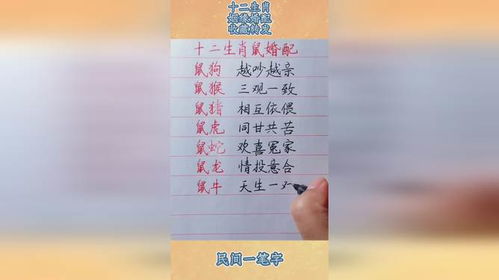 十二生肖
姻缘婚配
收藏转发
十二生肖鼠婚配
鼠狗 越吵越亲
鼠猴 三观一致
鼠猪 相互依偎
鼠虎 同甘共苦
鼠蛇 欢喜冤家
鼠龙 情投意合
鼠牛 天生一
民间一笔字